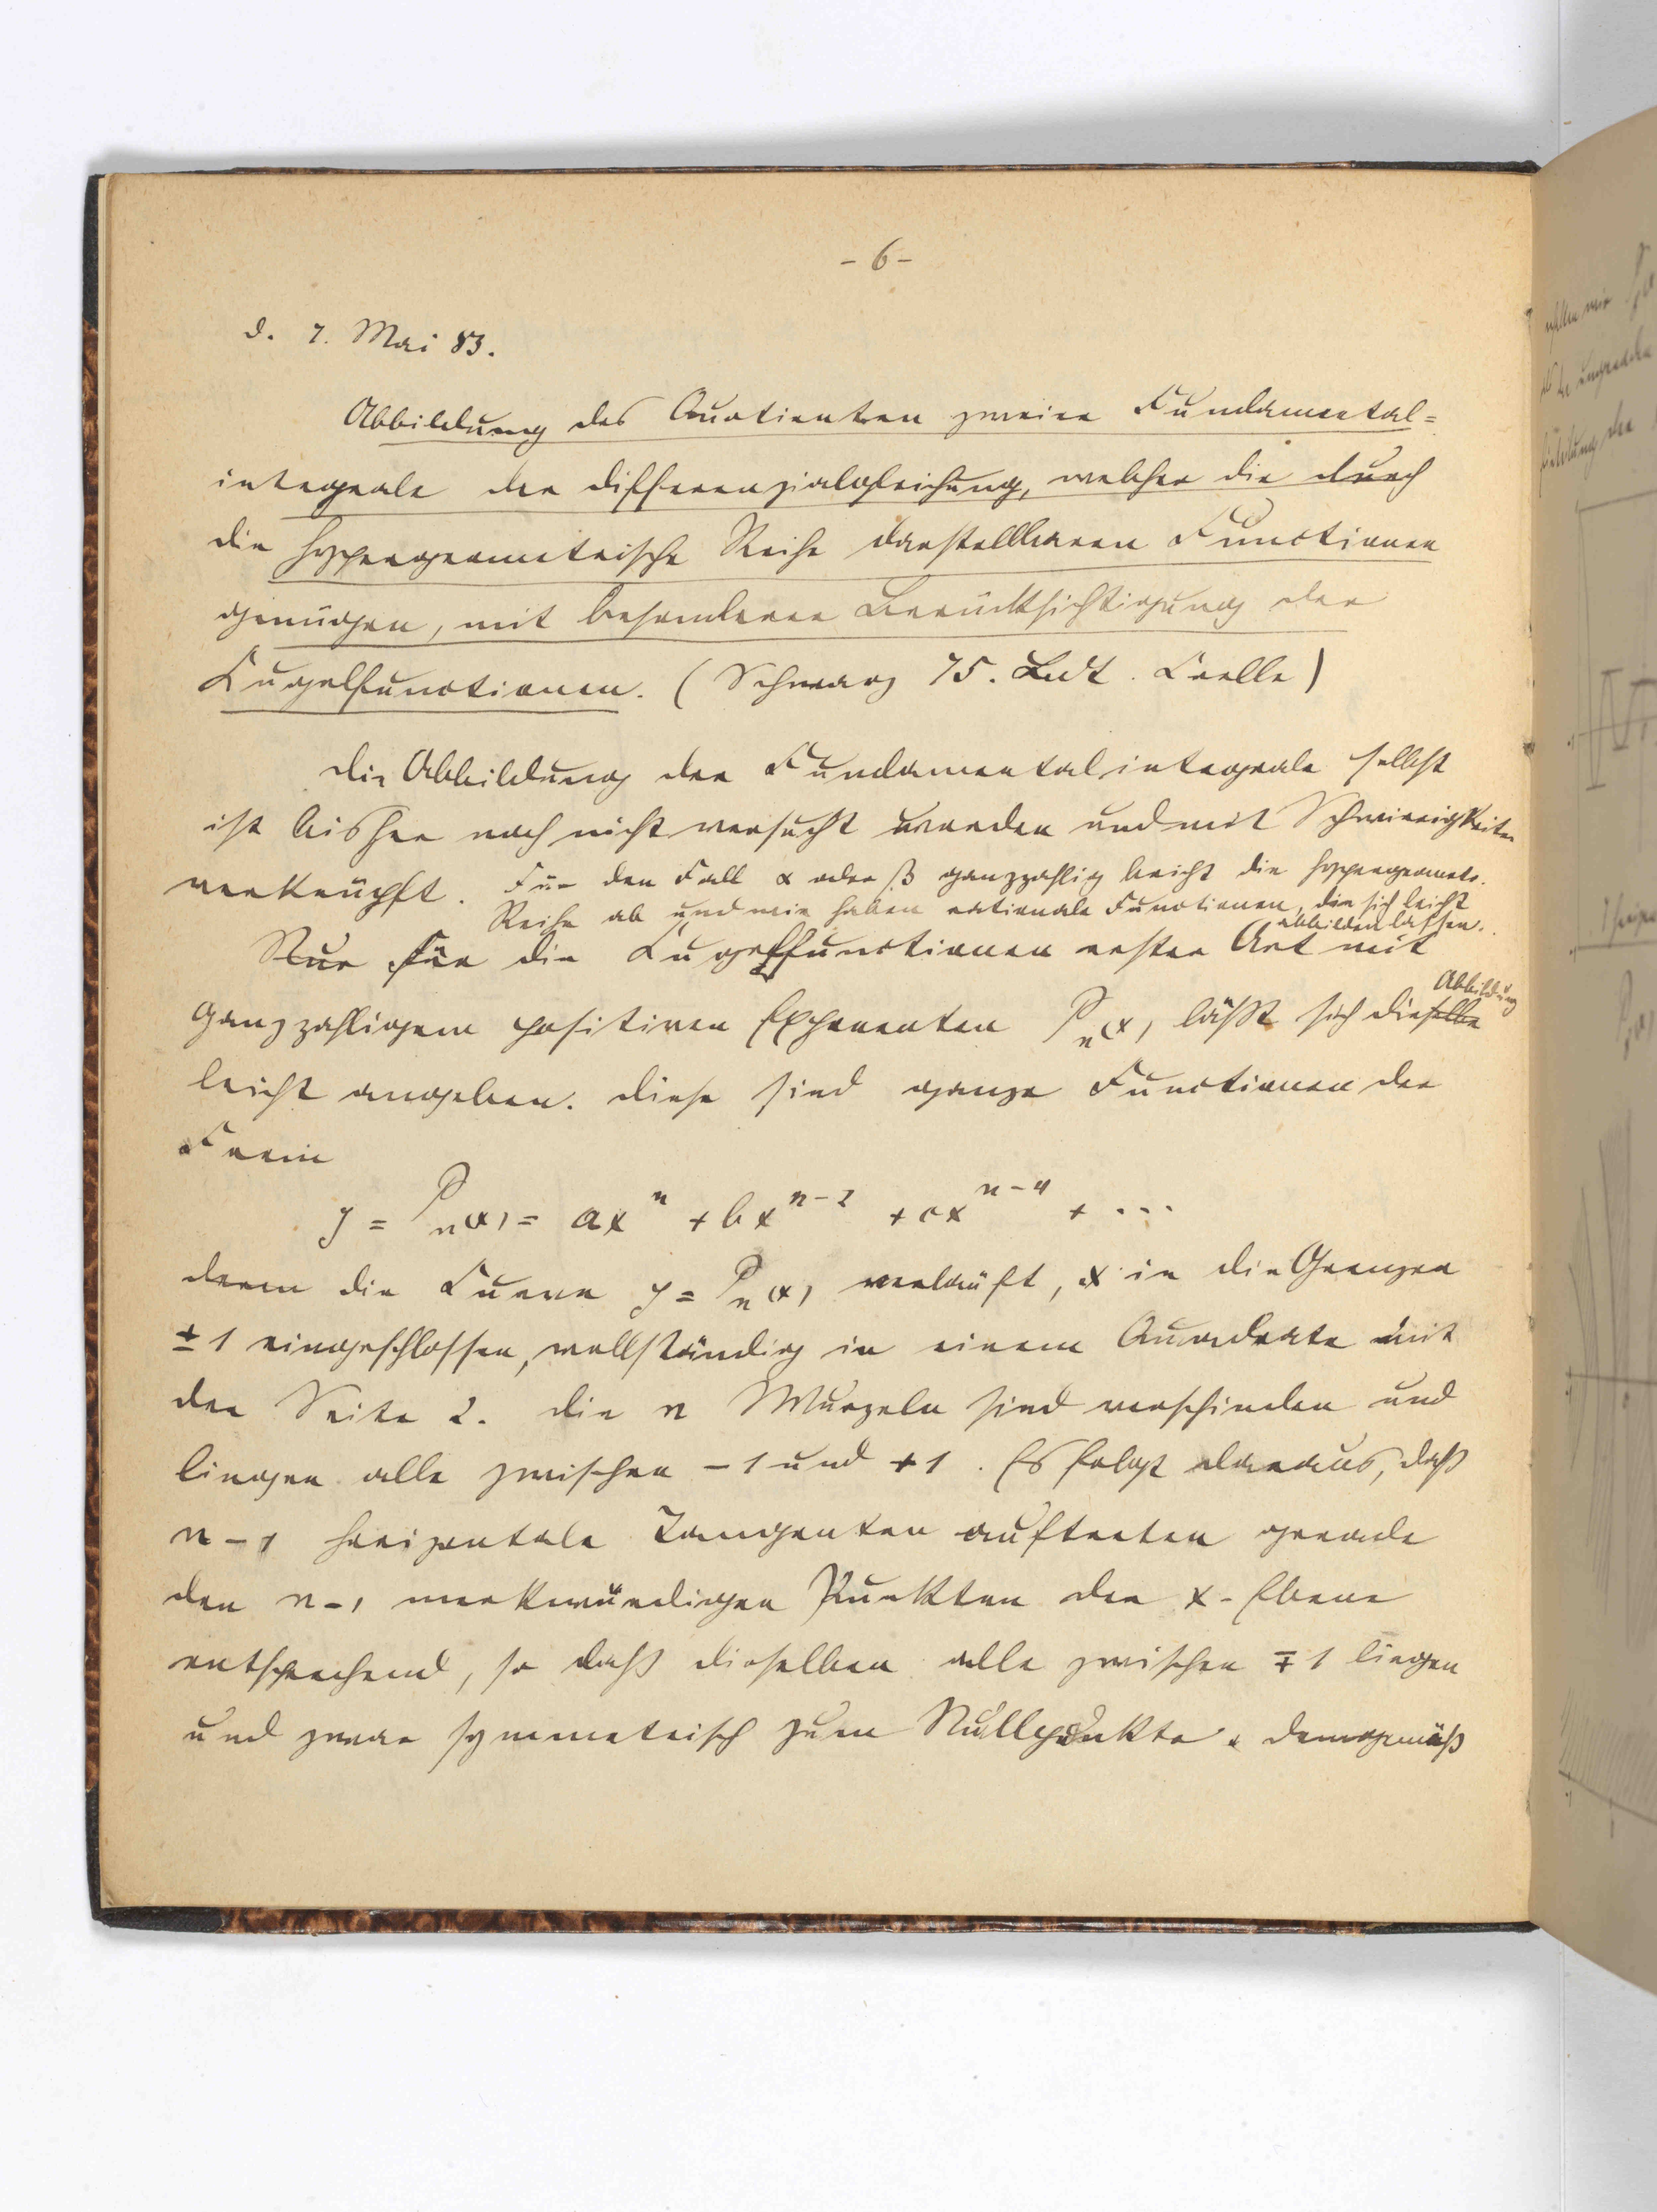 - 6 -
d. 7. Mai 83.
Abbildung des Quotienten zweier Fundamental=
integrale der Differenzialgleichung, welcher die durch
die hypergeometrische Reihe darstellbaren Functionen
genügen, mit besonderer Berücksichtigung der
Kugelfunctionen. (Schwarz 75. Bd. Crelle)
Die Abbildung der Fundamentalintegrale selbst
ist bisher noch nicht versucht worden und mit Schwierigkeiten
verknüpft. Für den Fall α oder β ganzzahlig bricht die hypergeometr.
Reihe ab und wir haben rationale Functionen, die sich leicht
abbilden lassen.
Nur für die Kugelfunctionen erster Art mit
ganzzahligem positiven Exponenten Pn(x) läßt sich dieselbe Abbildung
leicht angeben. Diese sind ganze Functionen der
Form
y = Pn(x) = ax^n + bx^{n-2} + cx^{n-4} + ...
denn die Curve y = Pn(x) verläuft, x in die Grenzen
± 1 eingeschlossen, vollständig in einem Quadrate mit
der Seite 2. Die n Wurzeln sind verschieden und
liegen alle zwischen - 1 und + 1. Es folgt daraus, daß
n - 1 horizontale Tangenten auftreten gerade
den n - 1 merkwürdigen Punkten der x-Ebene
entsprechend, so daß dieselben alle zwischen ∓ 1 liegen
und zwar symmetrisch zum Nullpunkte. Demgemäß